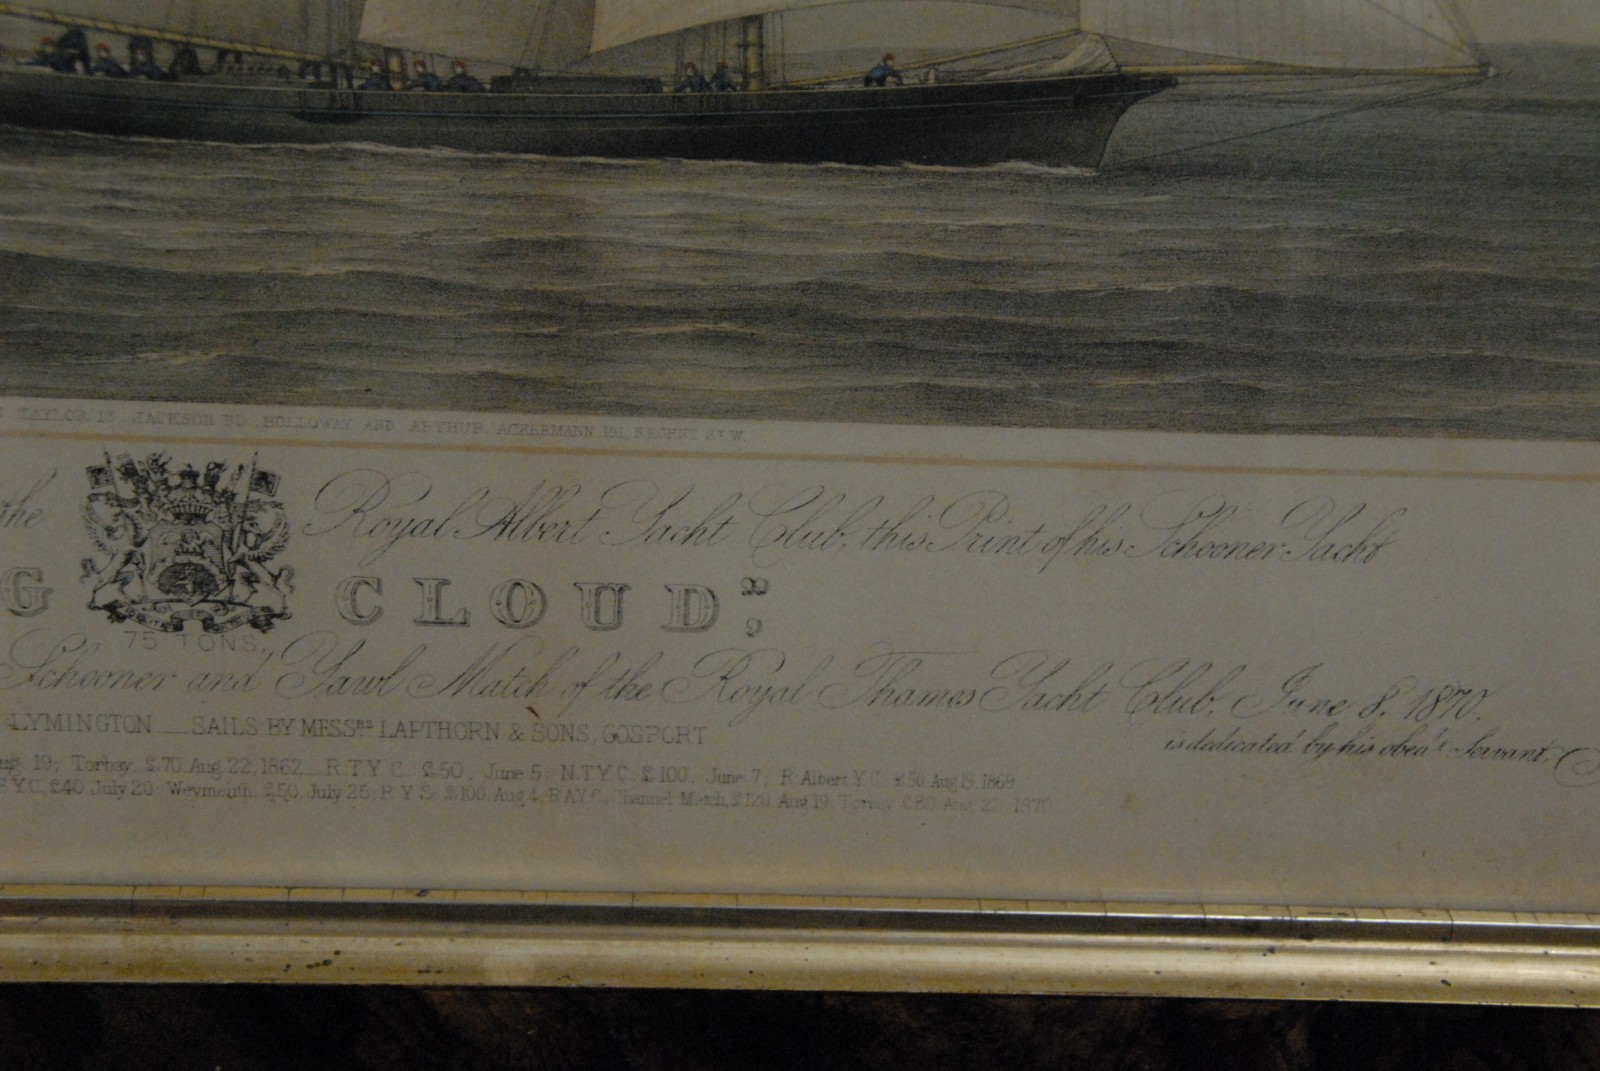 TAYLOR 13, JACKSON RD, HOLLOWAY AND ARTHUR ACKERMANN 191, REGENT ST W.
the Royal Albert Yacht Club, this Print of his Schooner Yacht
G CLOUD,"
75 TONS,
Schooner and Yawl Match of the Royal Thames Yacht Club, June 8, 1870,
LYMINGTON __ SAILS BY MESSRS LAPTHORN & SONS, GOSPORT
is dedicated by his obedt Servant,
Aug. 19; Torbay, £70, Aug. 22, 1862. R.T.Y.C. £50, June 5; N.T.Y.C. £100, June 7; R. Albert Y.C. £50, Aug 19, 1869
Y.C, £40, July 20; Weymouth, £50, July 25; R.Y.S. £100, Aug 4; R.A.Y.C. Channel Match, £120, Aug 19; Torbay £80 Aug 22 1870